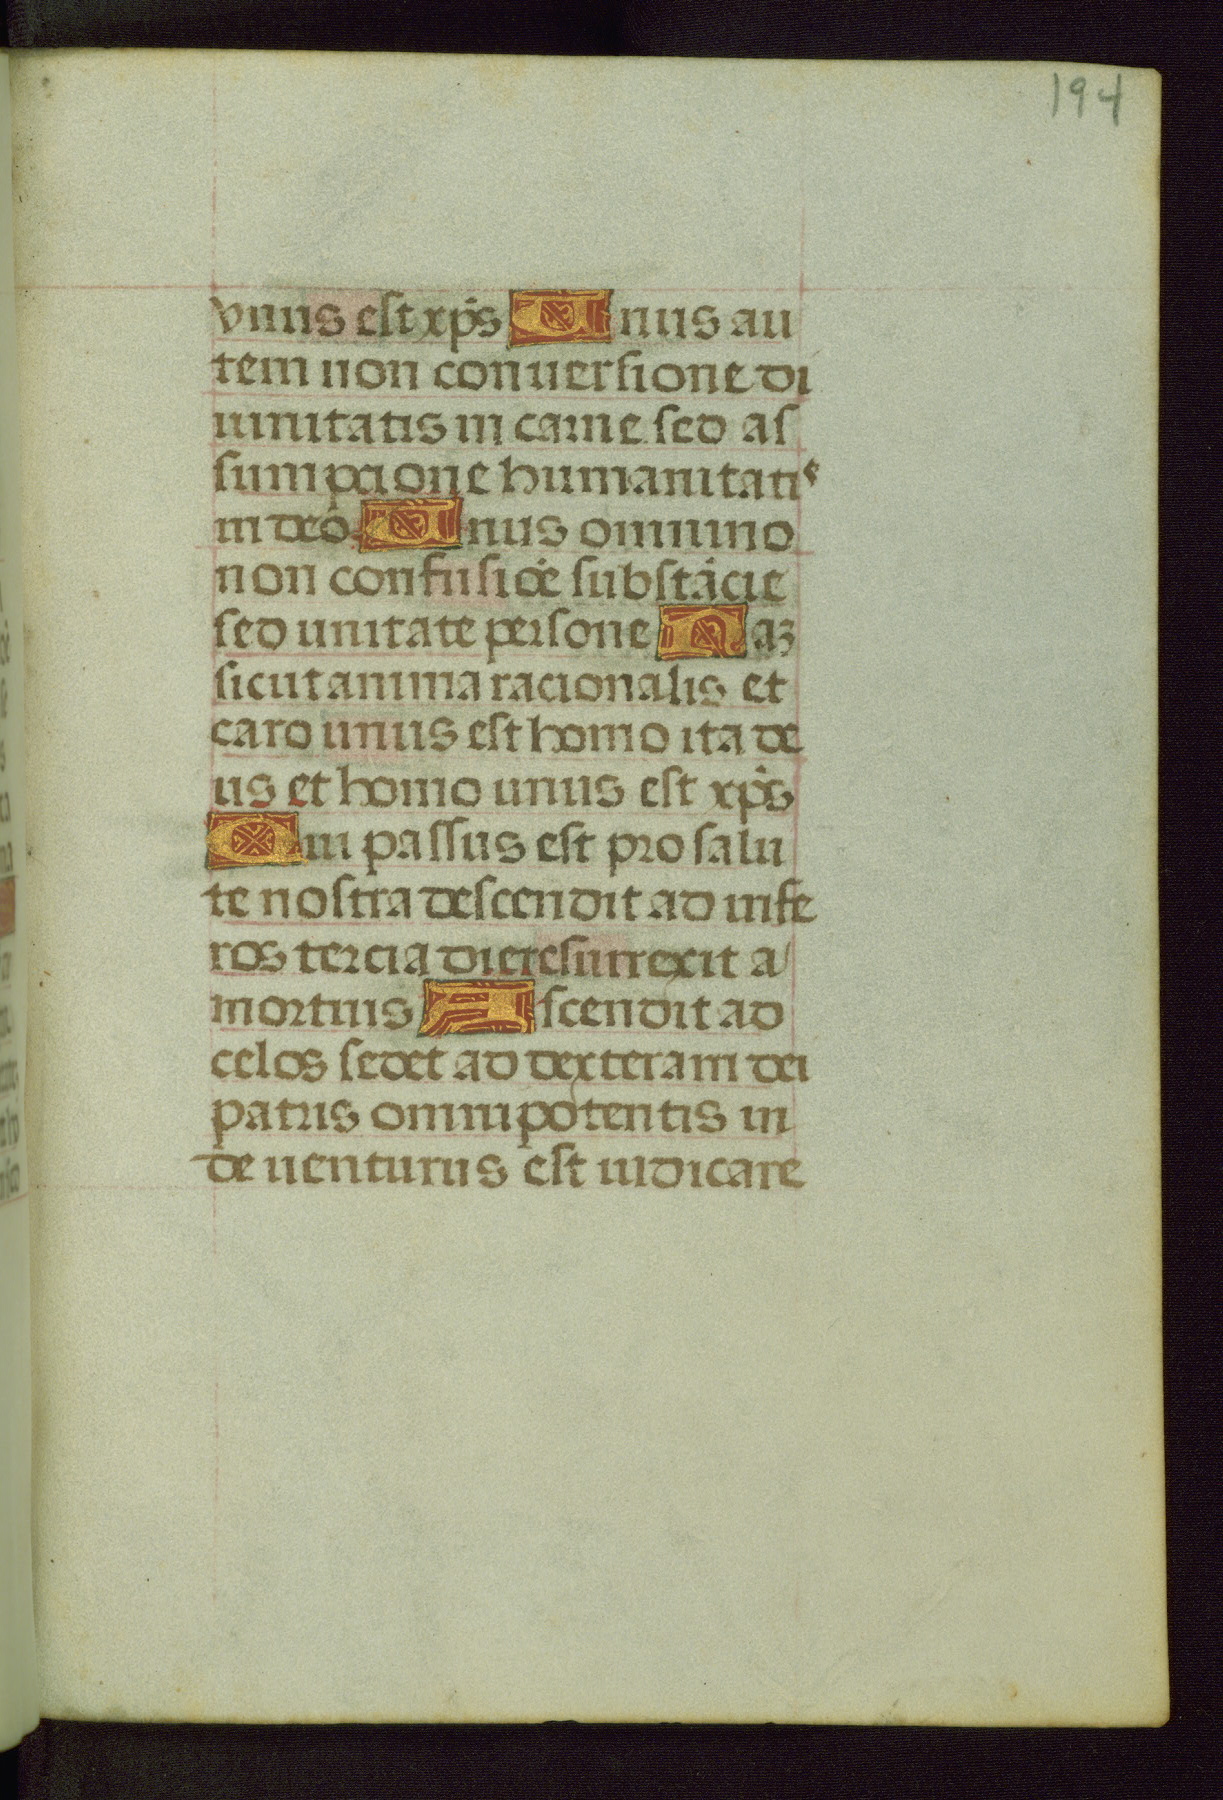 194
vnus est xp̄s Unus au
tem non conuersione di
uinitatis in carne sed as
sumpcione humanitatis
in deo. Unus omnino
non confusiōe substācie
sed unitate persone Naʒ
sicut anima racionalis et
caro unus est homo ita de
us et homo unus est xp̄s
Qui passus est pro salu
te nostra descendit ad infe
ros tercia die resurrexit a
mortuis Ascendit ad
celos sedet ad dexteram dei
patris omnipotentis in
de uenturus est iudicare